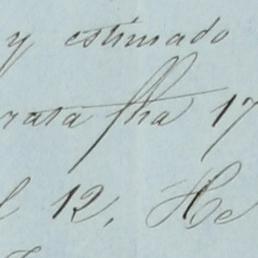 y estimado
rata fha 17
l 12, He